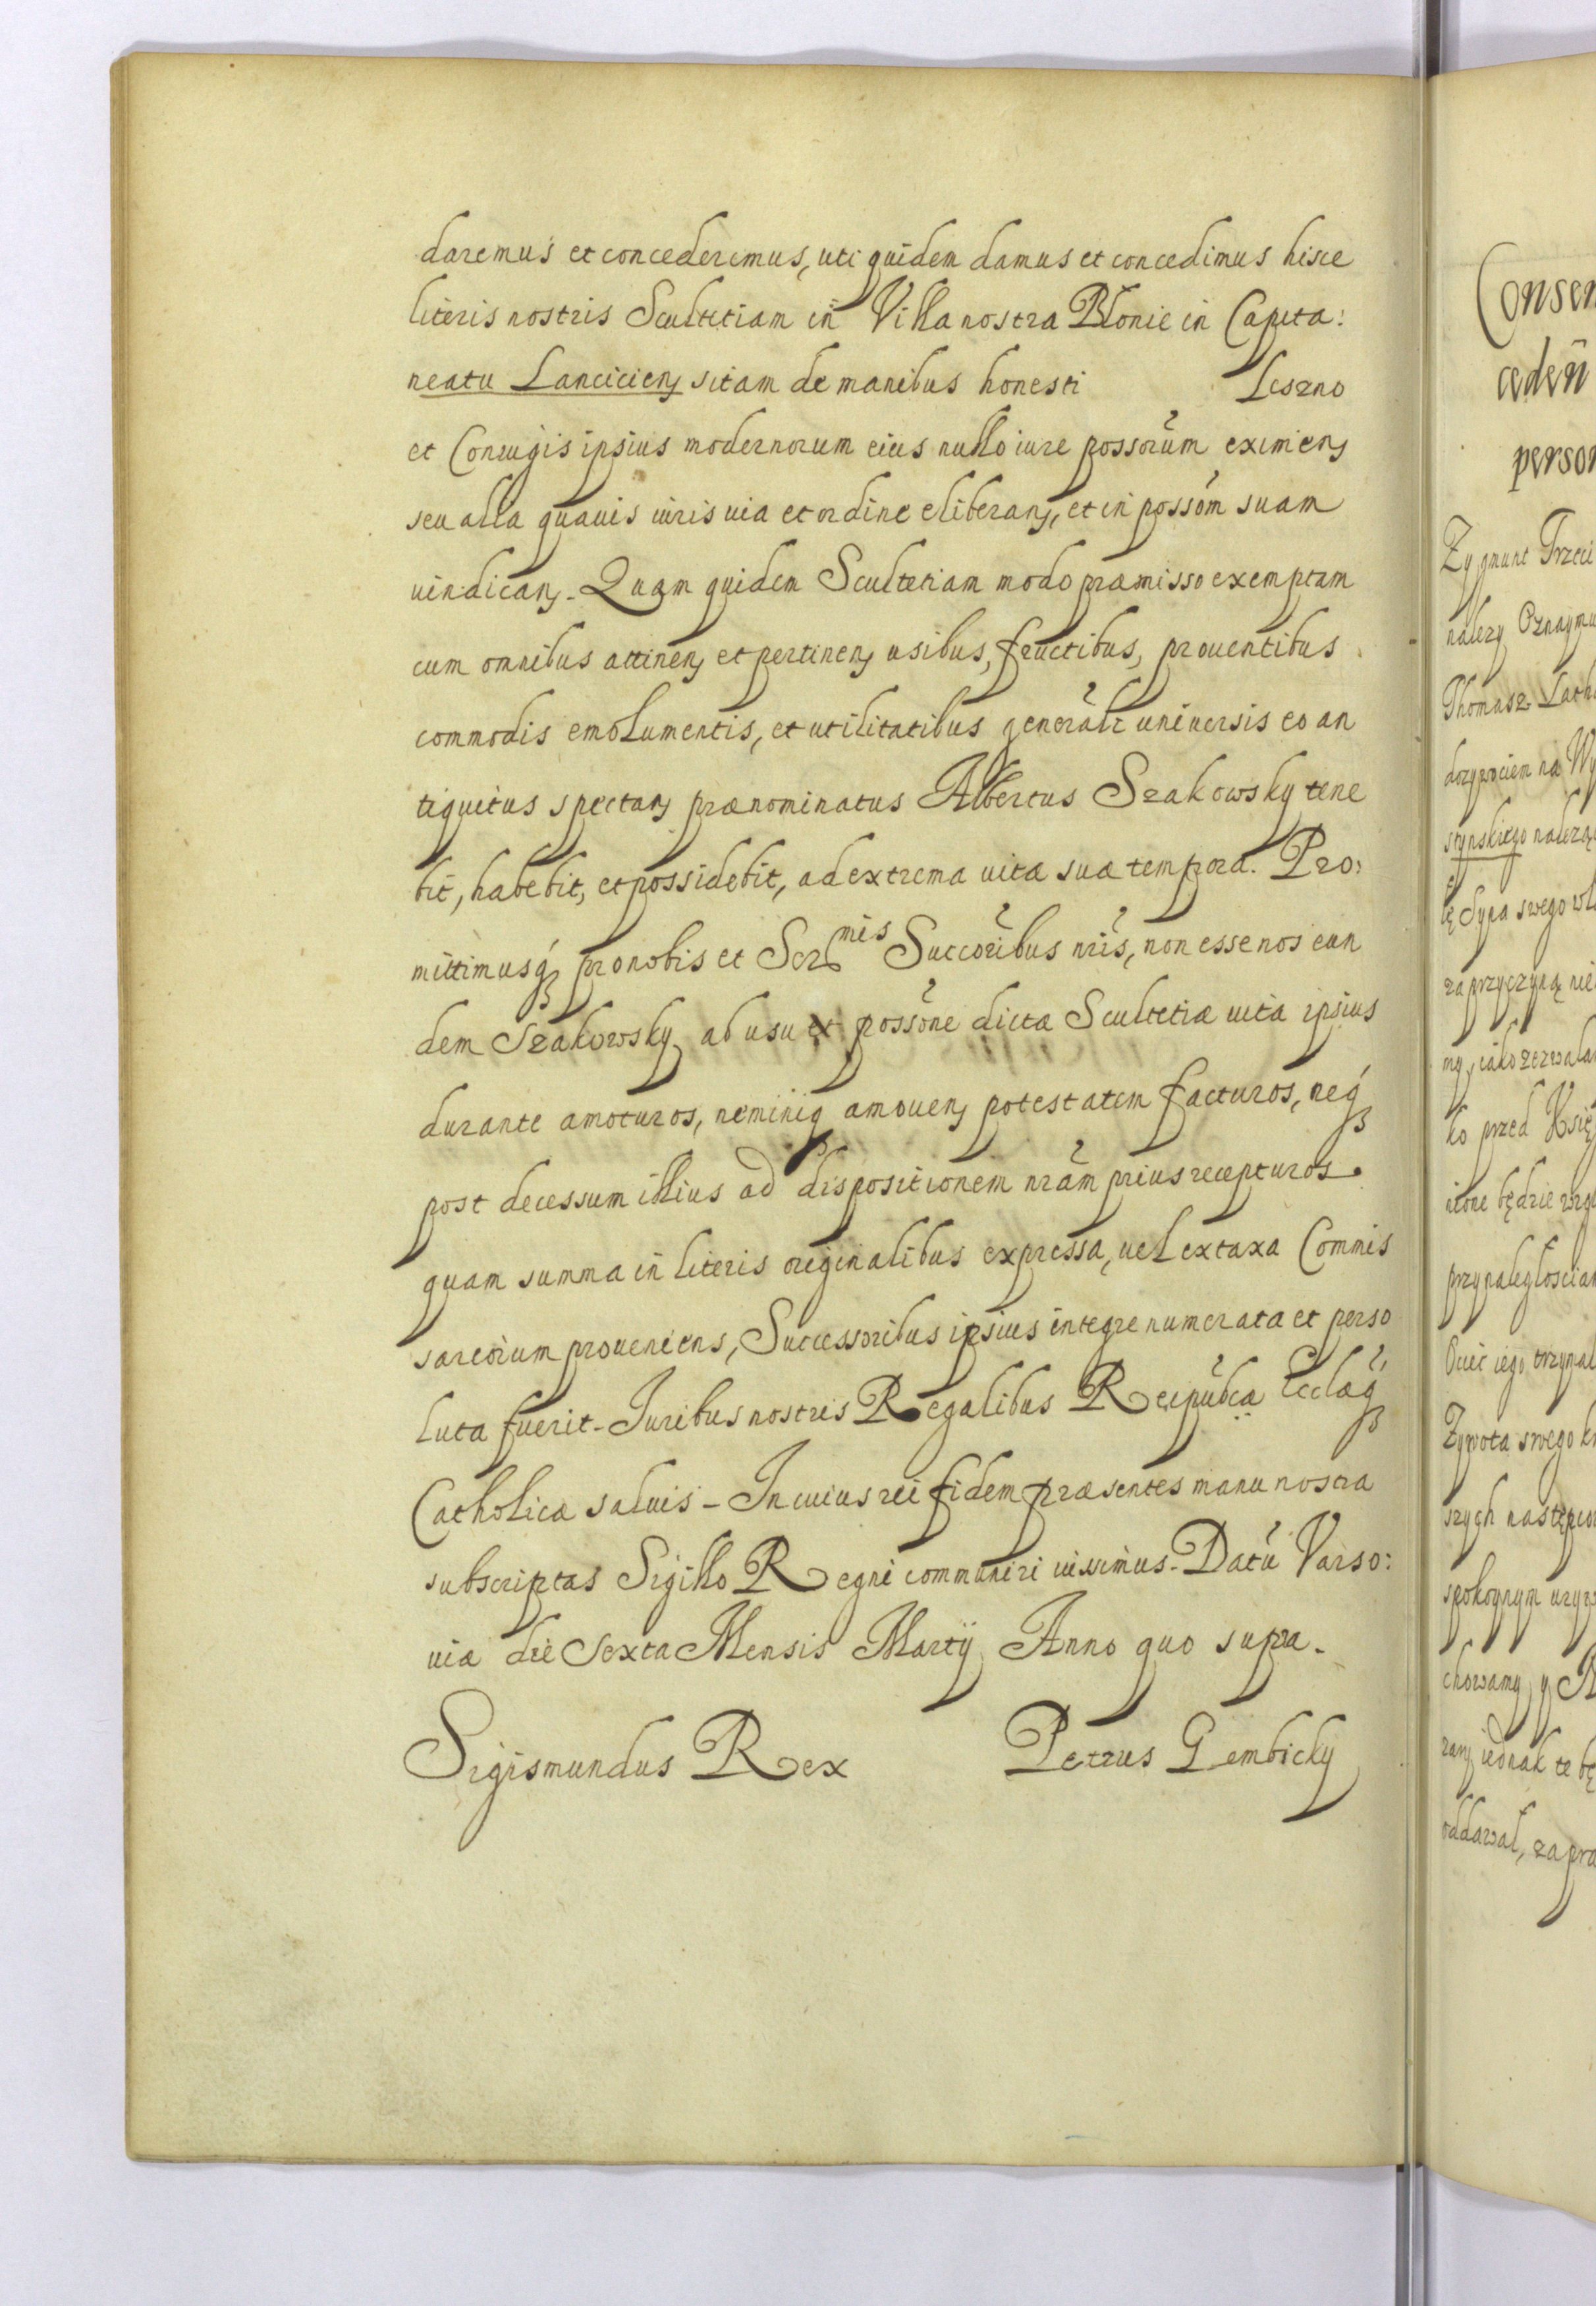 daremus et concederemus, uti quidem damus et concedimus hisce
literis nostris Scultetiam in Villa nostra Blonie in Capita:
neatu Lanciciens sitam de manibus honesti Leszno
et Coniugis ipsius modernorum eius nullo iure possorum eximens
seu alia quauis iuris uia et ordine eliberans, et in possom suam
uindicans. Quam quidem Scultetiam modo præmisso exemptam
cum omnibus attinens et pertinens usibus, fructibus, prouentibus
commodis emolumentis, et utilitatibus generalr uniuersis eo an
tiquitus spectans prænominatus Albertus Szakowsky tene
bit, habebit, et possidebit, ad extrema uitæ suæ tempora. Pro:
mittimusq pro nobis et Sermis Succoribus nris, non esse nos eun
dem Szakowsky ab usu et possone dictæ Scultetiæ uita ipsius
durante amoturos, neminiq amouens potestatem facturos, neq
post decessum illius ad dispositionem nram prius recepturos.
quam summa in literis originalibus expressa, uel ex taxa Commis
sariorum proueniens, Successoribus ipsius integre numerata et perso
luta fuerit. Iuribus nostris Regalibus Reipubcæ Ecclæq
Catholicæ saluis. In cuius rei fidem præsentes manu nostra
subscriptas Sigillo Regni communiri iussimus. Datu Varso:
uiæ die Sexta Mensis Martij Anno quo supra.
Sigismundus Rex Petrus Gembicky
Consen
ceden
person
Zygmunt Trzeci
nalezy Oznaymu
Thomasz Lath
dozywociem na Wy
stynskiego nalezą
Syna swego
za przyczyną nie
my, iako
ko przed Ksią
będzie
przynaleglościam
Ociec iego trzymal
Zywota swego
szych następco
spokoynym
chowamy y
iednak te bę
oddawal, za pra